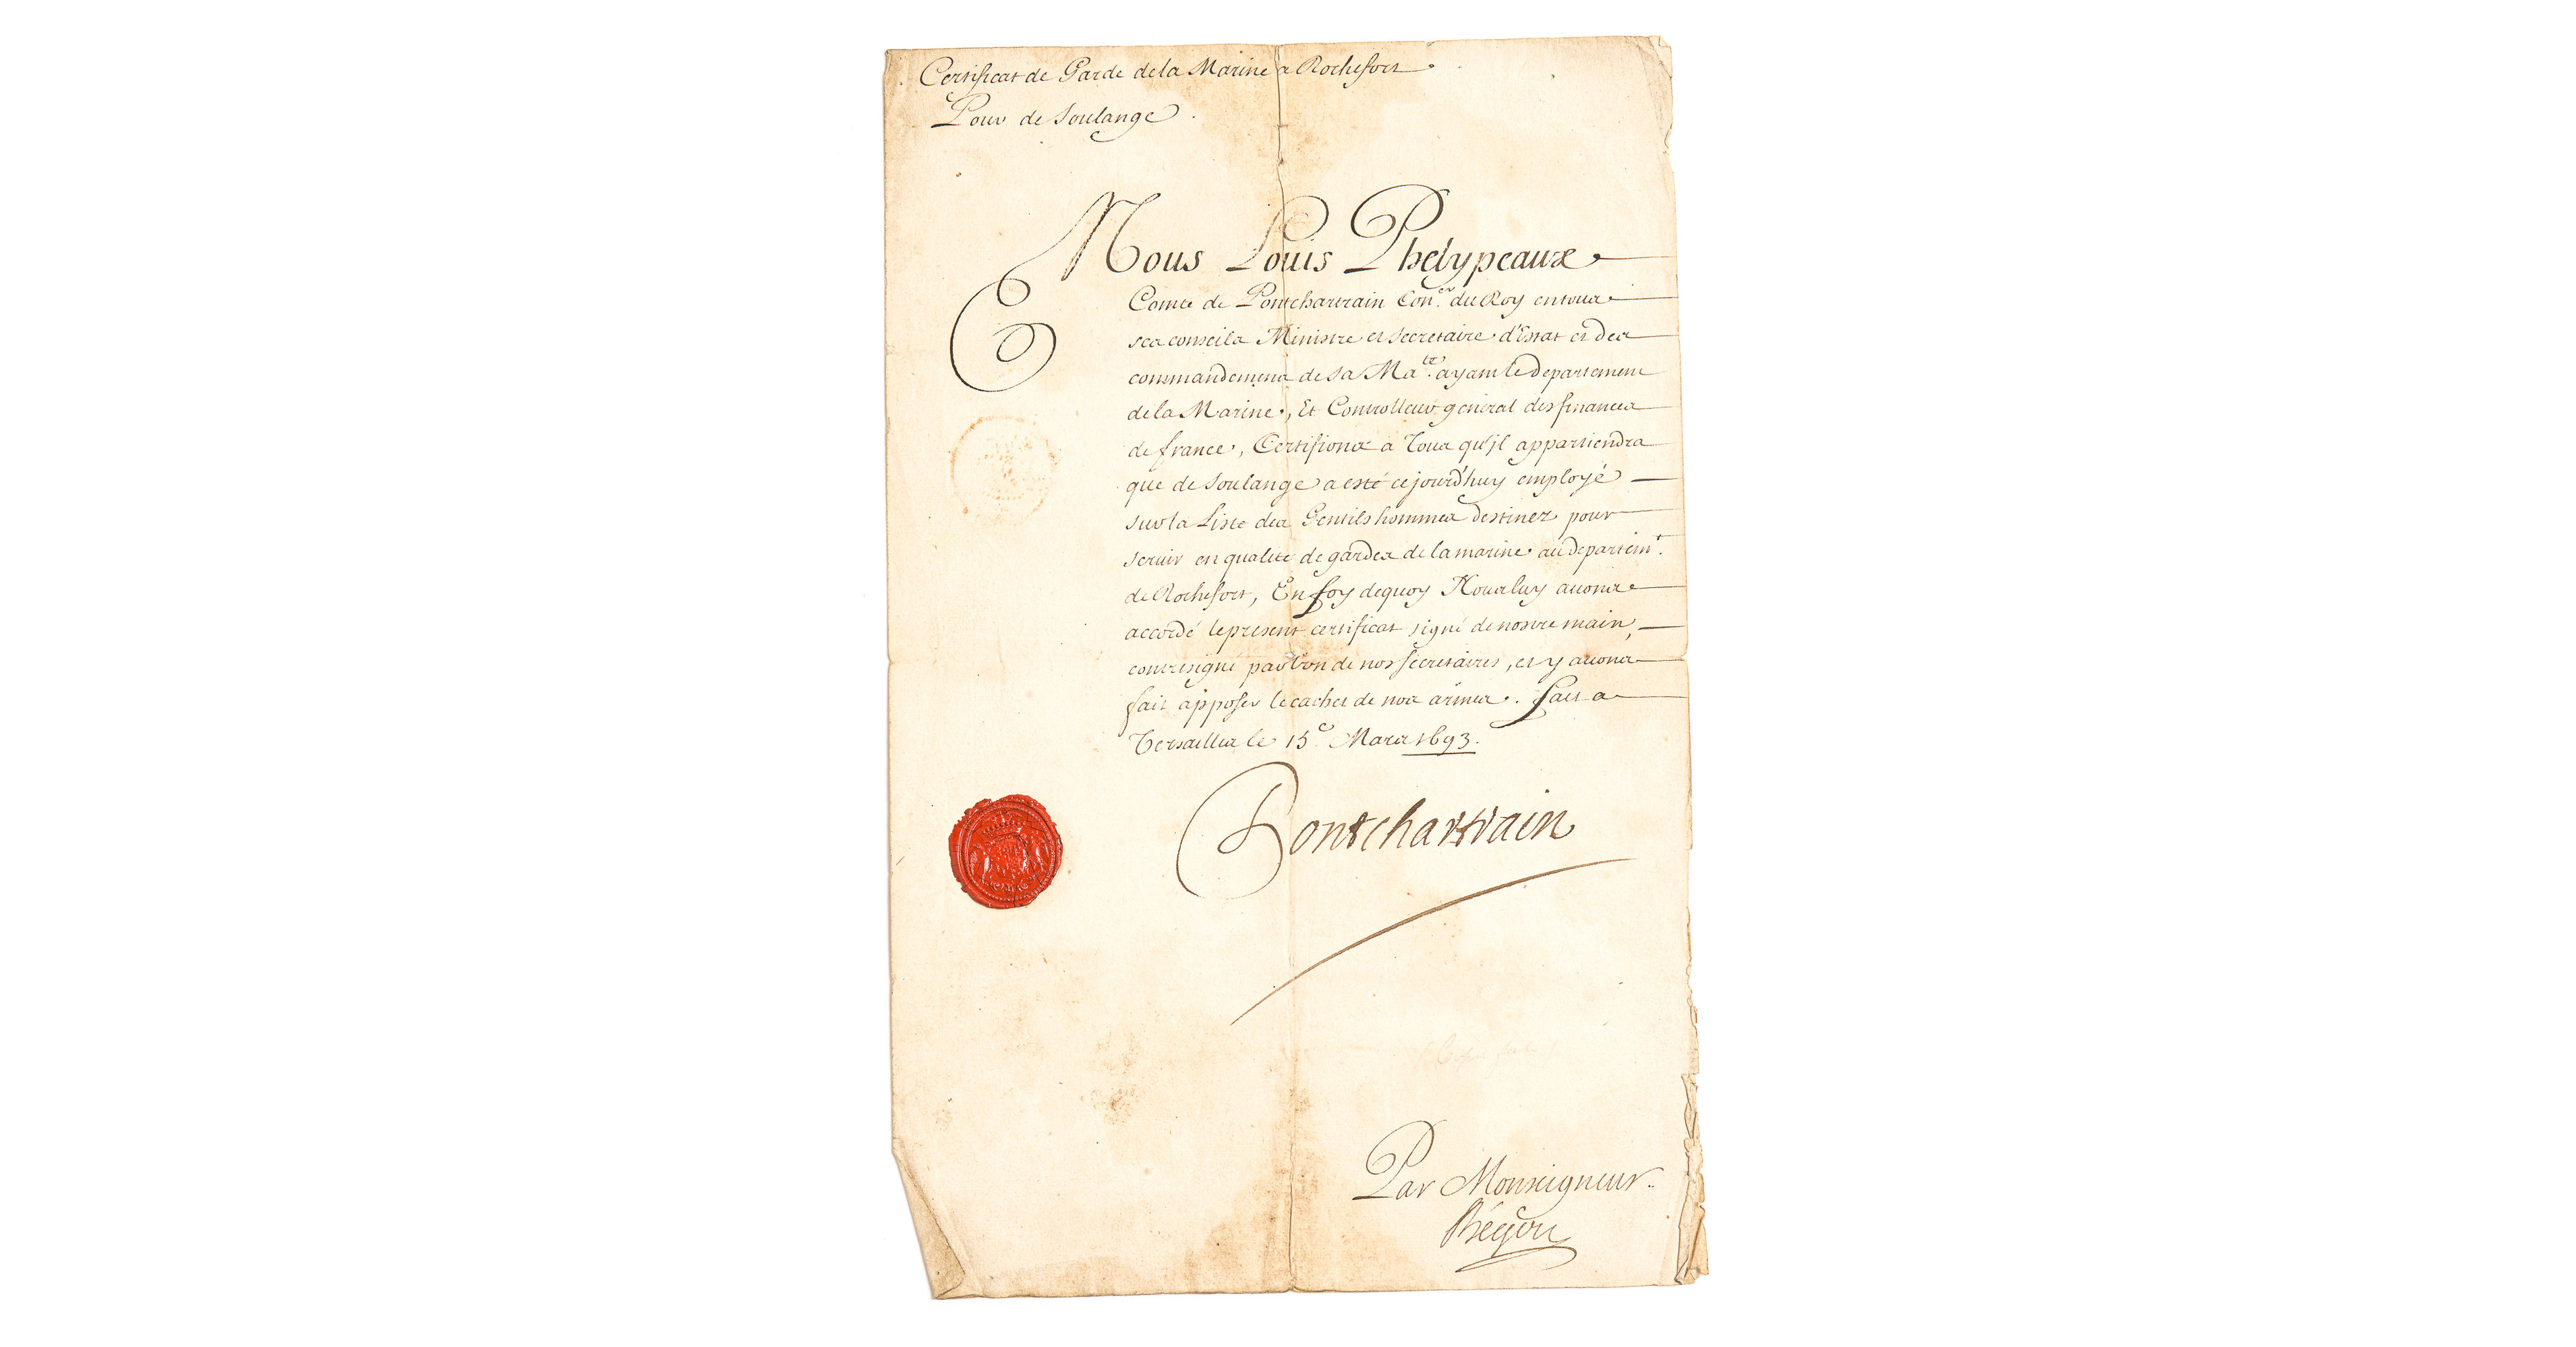 Certificat de Garde de la Marine a Rochefort
Pour de Soulange
Nous Louis Phelypeaux
Comte de Pontchartrain Con.er du Roy en tous
ses conseils Ministre et Secretaire d'Estat et des
commandemens de sa Ma.té ayant le departement
de la Marine, Et Controlleur general des finances
de france, Certifions a Tous qu'jl appartiendra
que de Soulange a esté cejourd'huy employé
sur la Liste des Gentilshommes destinez pour
seruir en qualité de gardes de la marine au departem.t
de Rochefort, En foy dequoy Nous luy auons
accordé le present certificat signé de nostre main,
contresigné par l'un de nos secretaires, et y auons
fait apposer le cachet de nos armes. Fait a
Versailles le 15.e Mars 1693.
Pontchartrain
Par Monseigneur
Bégon